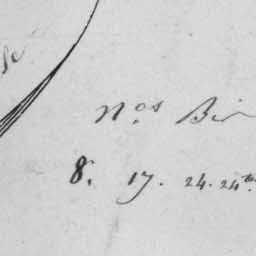 N.os Bi
8. 17. 24. 24th.